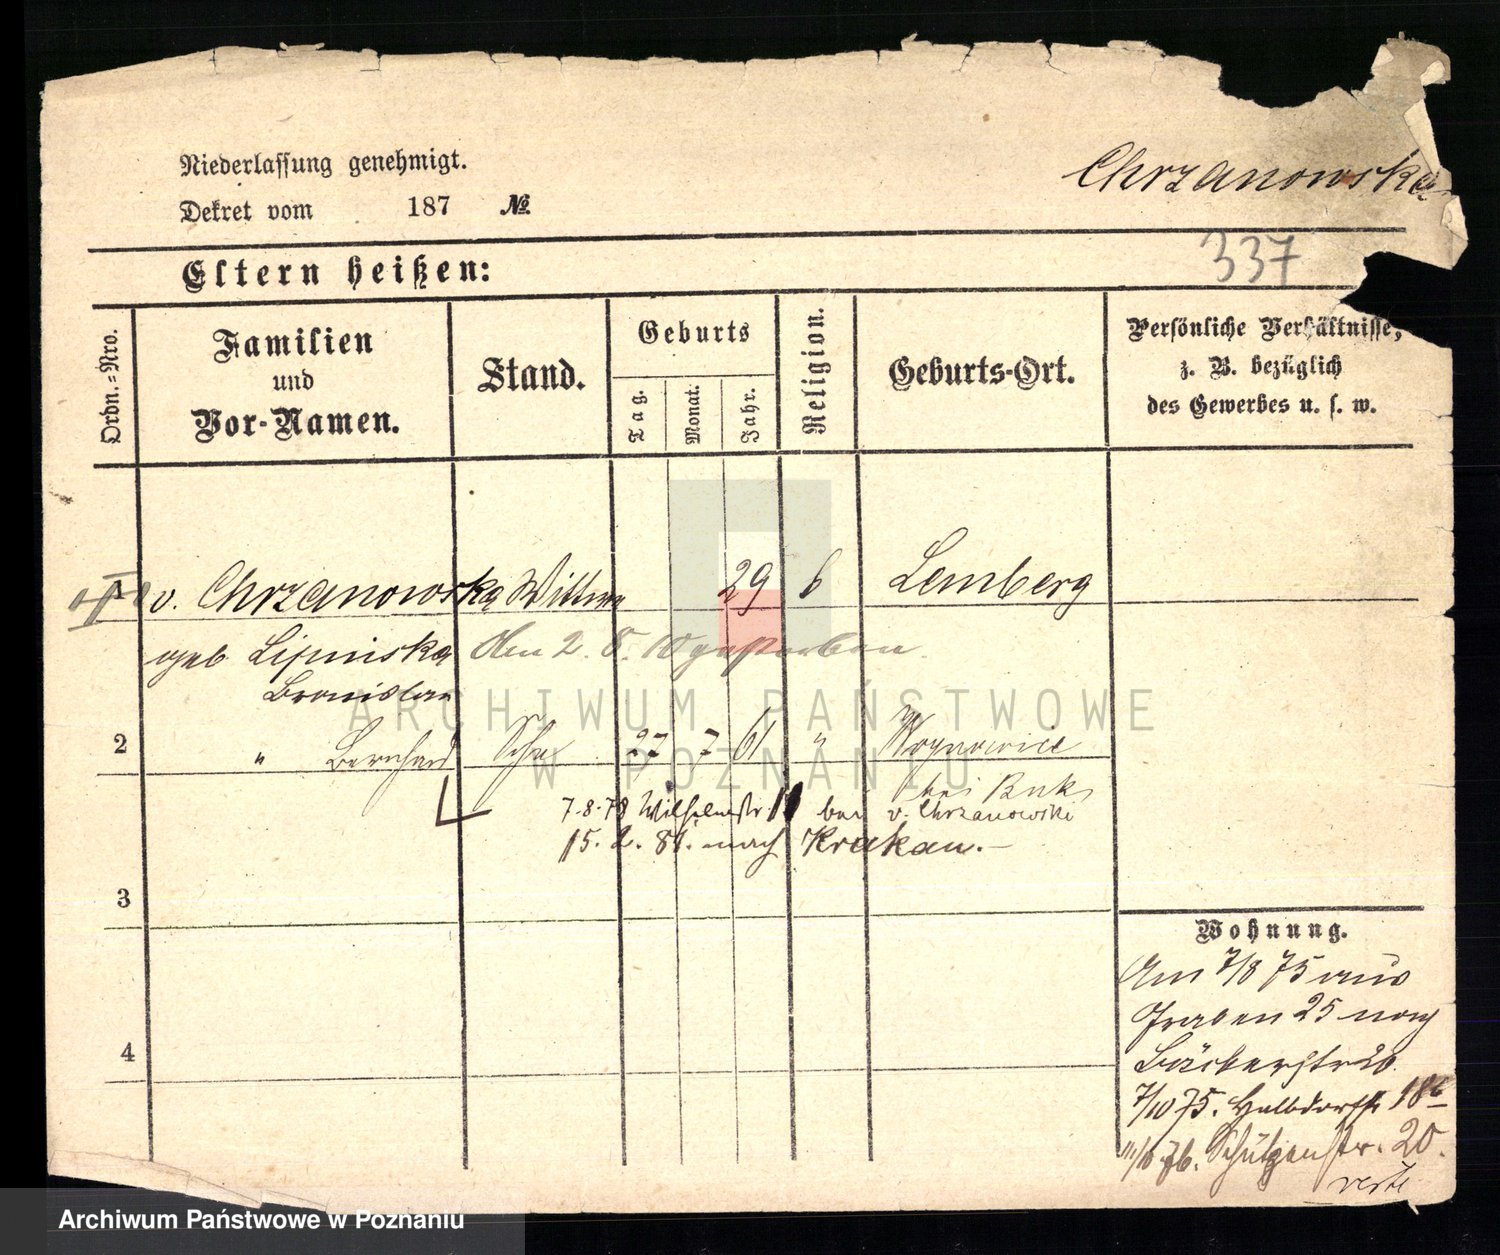 Niederlassung genehmigt.
Dekret vom 187 №
Chrzanowska
337
Eltern heißen:
Ordn.=Nro.
Familien
und
Vor-Namen.
Stand.
Geburts
Tag.
Monat.
Jahr.
Religion.
Geburts-Ort.
Persönliche Verhältnisse,
z. B. bezüglich
des Gewerbes u. s. w.
1 v. Chrzanowska Wittwe 29 k Lemberg
geb Lipinska Den 2. 8. 10 gestorben.
Bronislawa
2 " Bernhard Sohn 27 7 61 "
bei Buk
7.8.78 Wilhelmstr 11 bei v. Chrzanowski
15. 2. 81. nach Krakau.-
3
4
Wohnung.
Am 7/8 75 aus
Graben 25 nach
Bäckerstr 20.
7/10 75. Halbdorfstr 18b
76. Schützenstr. 20.
verte
ARCHIWUM PAŃSTWOWE
W POZNANIU
Archiwum Państwowe w Poznaniu